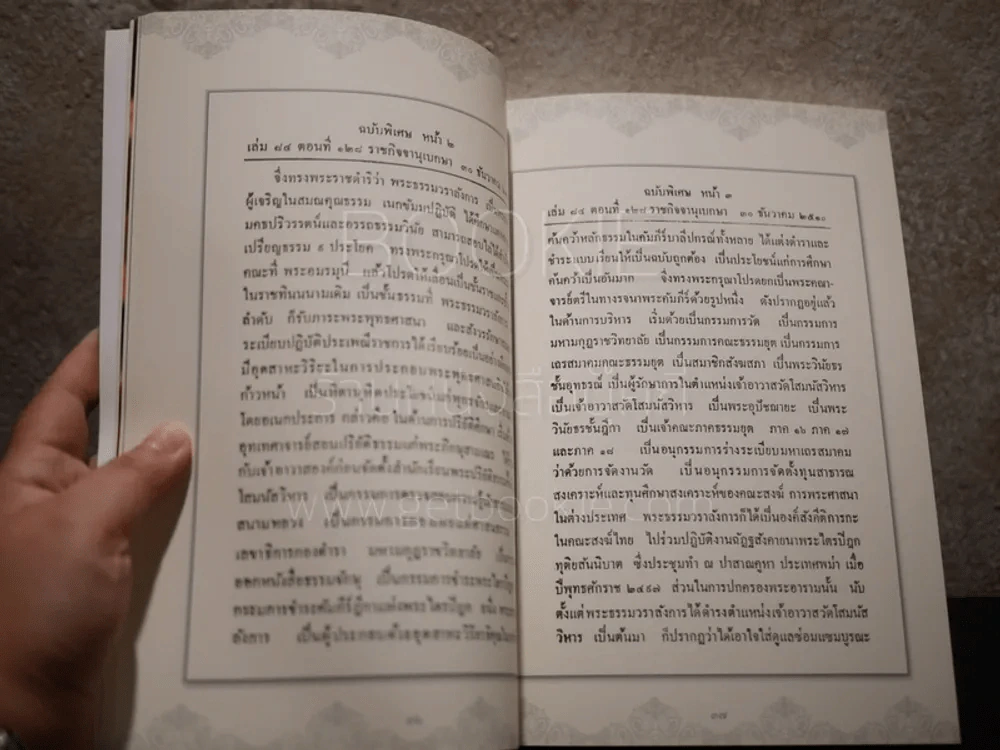 ฉบับพิเศษ หน้า ๒
เล่ม ๘๔ ตอนที่ ๑๒๘ ราชกิจจานุเบกษา ๓๐ ธันวาคม
จึงทรงพระราชดำริว่า พระธรรมวราลังการ
ผู้เจริญในสมณคุณธรรม เนกขัมมปฏิบัติ ได้ศึกษา
มคธปริวรรตน์และอรรถธรรมวินัย สามารถสอบไล่ได้
เปรียญธรรม ๙ ประโยค ทรงพระกรุณาโปรดให้
คณะที่ พระอมรมุนี แล้วโปรดให้เลื่อนเป็นชั้นราช
ในราชทินนนามเดิม เป็นชั้นธรรมที่ พระธรรมวราลังการ
ลำดับ ก็รับภาระพระพุทธศาสนา และสังวรรักษา
ระเบียบปฏิบัติประเพณีราชการได้เรียบร้อยเป็นอย่างดี
มีอุตสาหะวิริยะในการประกอบพระพุทธศาสนกิจ
ก้าวหน้า เป็นหิตานุหิตประโยชน์แก่พุทธจักร
โดยอเนกประการ กล่าวคือ ในด้านการปริยัติศึกษา
อุทเทศาจารย์สอนปริยัติธรรมแก่พระภิกษุสามเณร
กับเจ้าอาวาสองค์ก่อนจัดตั้งสำนักเรียนพระปริยัติธรรม
โสมนัสวิหาร เป็นกรรมการตรวจ
สนามหลวง เป็นกรรมการ
เลขาธิการกองตำรา มหามกุฏราชวิทยาลัย
ออกหนังสือธรรมจักษุ เป็นกรรมการชำระพระไตรปิฎก
กรรมการชำระคัมภีร์ฎีกาแห่งพระไตรปิฎก อนึ่ง
ลังการ เป็นผู้ประกอบด้วยอุตสาหะวิริยาธิคุณ
๓๖
ฉบับพิเศษ หน้า ๓
เล่ม ๘๔ ตอนที่ ๑๒๘ ราชกิจจานุเบกษา ๓๐ ธันวาคม ๒๕๑๐
ค้นคว้าหลักธรรมในคัมภีร์บาลีปกรณ์ทั้งหลาย ได้แต่งตำราและ
ชำระแบบเรียนให้เป็นฉบับถูกต้อง เป็นประโยชน์แก่การศึกษา
ค้นคว้าเป็นอันมาก จึงทรงพระกรุณาโปรดยกเป็นพระคณา-
จารย์ตรีในทางรจนาพระคัมภีร์ด้วยรูปหนึ่ง ดังปรากฏอยู่แล้ว
ในด้านการบริหาร เริ่มด้วยเป็นกรรมการวัด เป็นกรรมการ
มหามกุฎราชวิทยาลัย เป็นกรรมการคณะธรรมยุต เป็นกรรมการ
เถรสมาคมคณะธรรมยุต เป็นสมาชิกสังฆสภา เป็นพระวินัยธร
ชั้นอุทธรณ์ เป็นผู้รักษาการในตำแหน่งเจ้าอาวาสวัดโสมนัสวิหาร
เป็นเจ้าอาวาสวัดโสมนัสวิหาร เป็นพระอุปัชฌายะ เป็นพระ
วินัยธรชั้นฎีกา เป็นเจ้าคณะภาคธรรมยุต ภาค ๑๖ ภาค ๑๗
และภาค ๑๘ เป็นอนุกรรมการร่างระเบียบมหาเถรสมาคม
ว่าด้วยการจัดงานวัด เป็นอนุกรรมการจัดตั้งทุนสาธารณ
สงเคราะห์และทุนศึกษาสงเคราะห์ของคณะสงฆ์ การพระศาสนา
ในต่างประเทศ พระธรรมวราลังการก็ได้เป็นองค์สังคีติการกะ
ในคณะสงฆ์ไทย ไปร่วมปฏิบัติงานฉัฏฐสังคายนาพระไตรปิฎก
ทุติยสันนิบาต ซึ่งประชุมทำ ณ ปาสาณคูหา ประเทศพม่า เมื่อ
ปีพุทธศักราช ๒๔๙๗ ส่วนในการปกครองพระอารามนั้น นับ
ตั้งแต่พระธรรมวราลังการได้ดำรงตำแหน่งเจ้าอาวาสวัดโสมนัส
วิหาร เป็นต้นมา ก็ปรากฏว่าได้เอาใจใส่ดูแลซ่อมแซมบูรณะ
๓๗
BOOKIE
www.getbookie.com